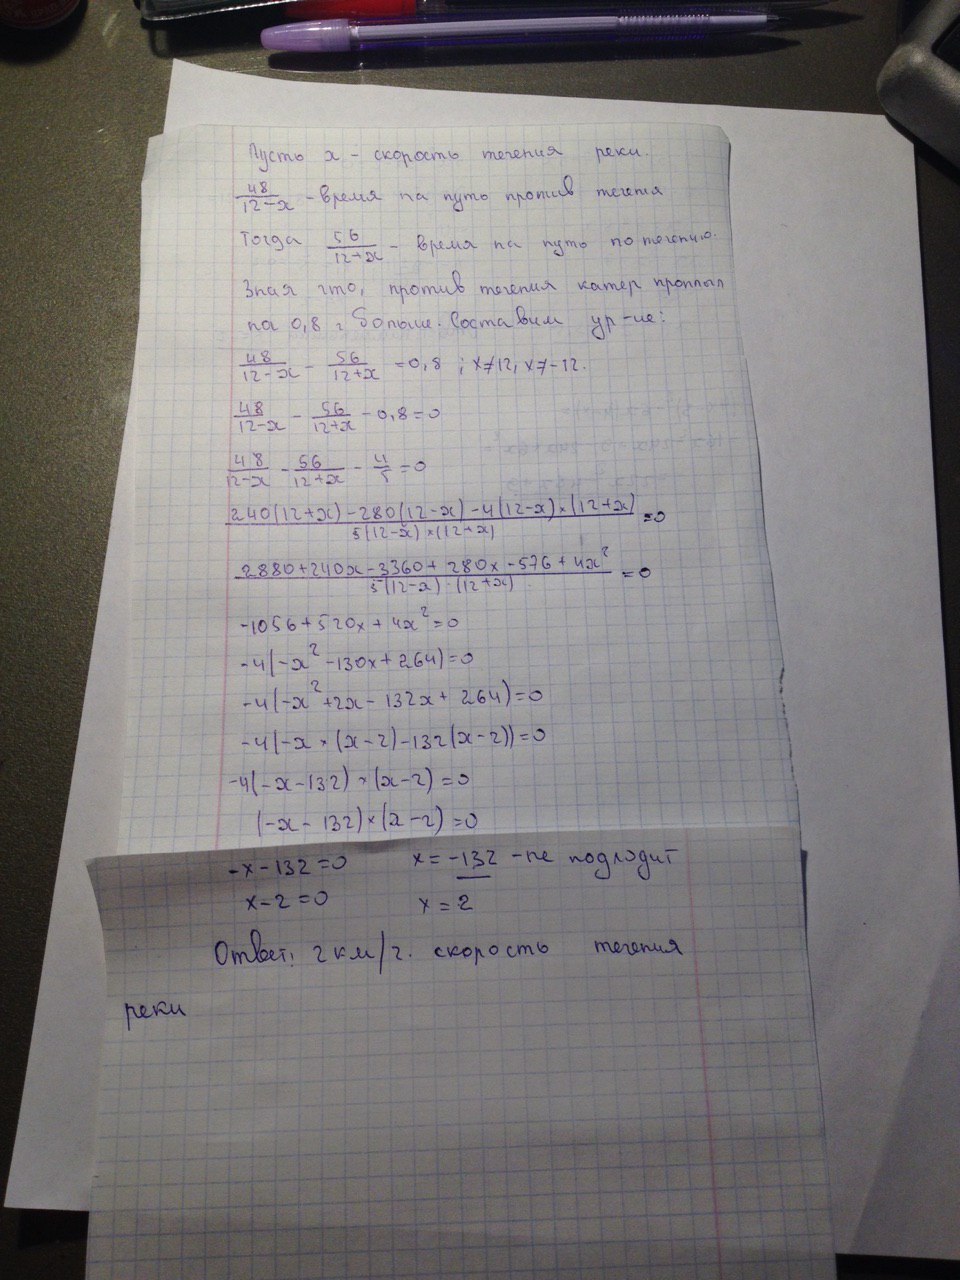 Пусть x - скорость течения реки.
48/(12-x) - время на путь против течетя
Тогда 56/(12+x) - время на путь по течению.
Зная что, против течения катер проплыл
на 0,8 ч больше. Составим ур-ие:
48/(12-x) - 56/(12+x) = 0,8 ; x≠12, x≠-12.
48/(12-x) - 56/(12+x) - 0,8 = 0
48/(12-x) - 56/(12+x) - 4/5 = 0
(240(12+x) - 280(12-x) - 4(12-x)×(12+x))/(5(12-x)×(12+x)) = 0
(2880+240x-3360+280x-576+4x²)/(5(12-x)·(12+x)) = 0
-1056+520x+4x²=0
-4(-x²-130x+264)=0
-4(-x²+2x-132x+264)=0
-4(-x×(x-2)-132(x-2))=0
-4(-x-132)×(x-2)=0
(-x-132)×(x-2)=0
-x-132=0 x=-132 - не подходит
x-2=0 x=2
Ответ: 2 км/ч. скорость течения
реки